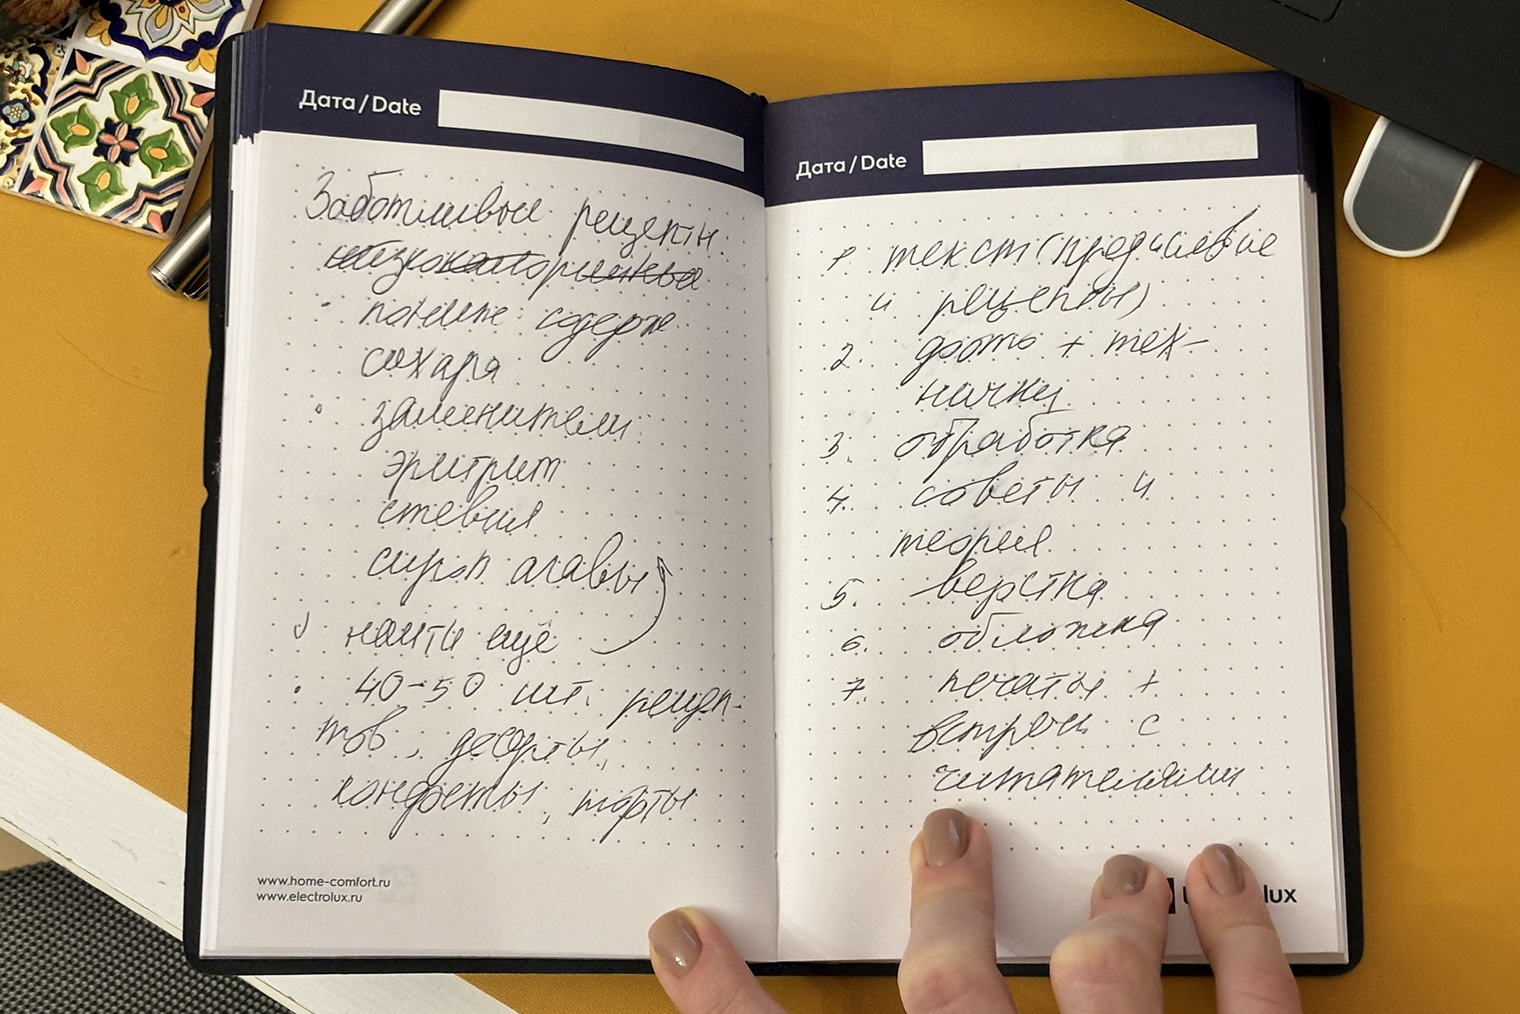 Дата / Date
Заботливые рецепты
низкокалорийные
· пониж содерж
сахара
· заменители
эритрит
стевия
сироп агавы
найти ещё
· 40-50 шт. рецеп-
тов, десерты,
конфеты, торты
www.home-comfort.ru
www.electrolux.ru
Дата / Date
1. текст (предисловие
и рецепты)
2. фото + тех-
начки
3. обработка
4. советы и
теория
5. верстка
6. обложка
7. печать +
встречи с
читателями
lux